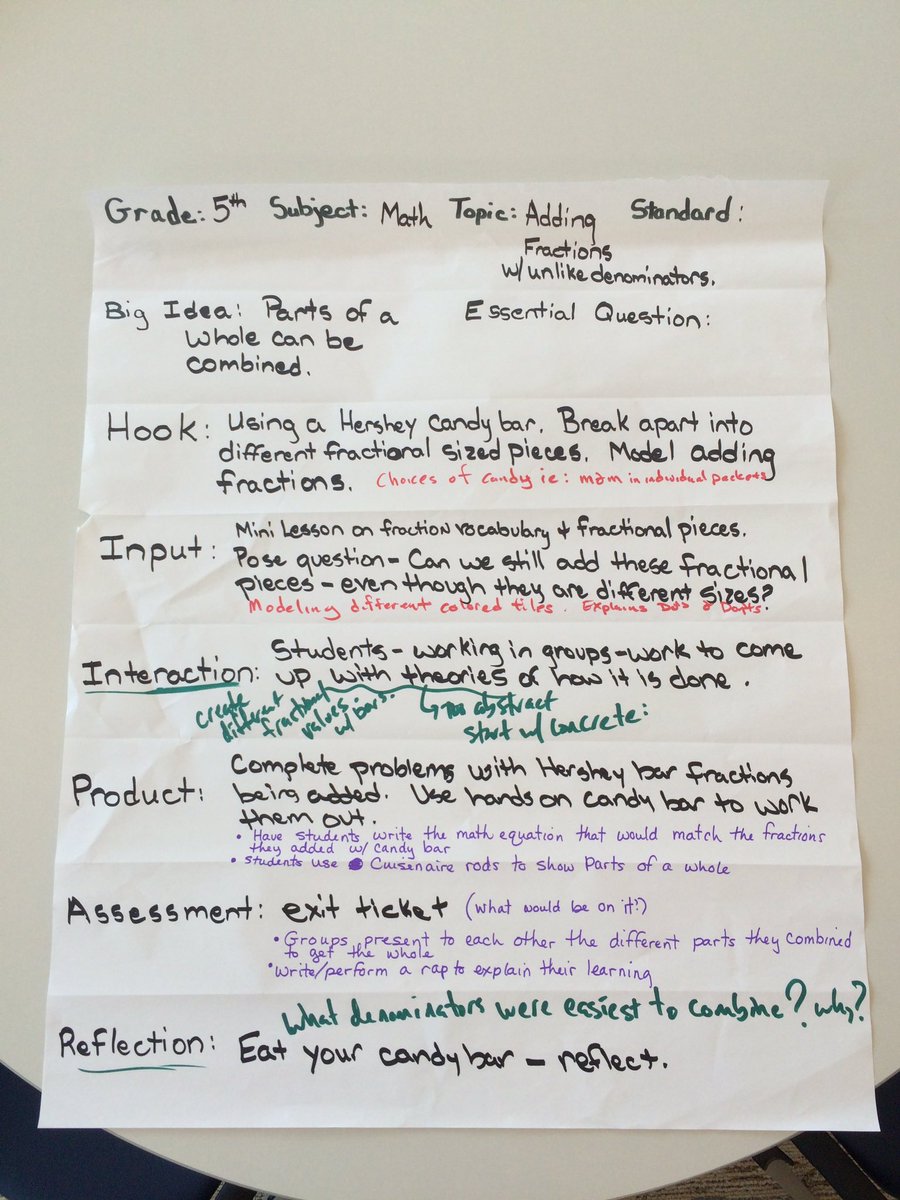 Grade: 5th Subject: Math Topic: Adding Standard:
Fractions
w/ unlike denominators.
Big Idea: Parts of a Essential Question:
whole can be
combined.
Hook: Using a Hershey candy bar. Break apart into
different fractional sized pieces. Model adding
fractions. Choices of candy ie: m&m in individual packets
Input: Mini Lesson on fraction vocabulary & fractional pieces.
Pose question - Can we still add these fractional
pieces - even though they are different sizes?
Modeling different colored tiles. Explains
Interaction: Students - working in groups - work to come
up with theories of how it is done.
create
different
fractional
values
w/ bars.
too abstract
start w/ concrete:
Product: Complete problems with Hershey bar fractions
being added. Use hands on candy bar to work
them out.
• Have students write the math equation that would match the fractions
they added w/ candy bar
• students use Cuisenaire rods to show Parts of a whole
Assessment: exit ticket (what would be on it?)
• Groups present to each other the different parts they combined
to get the whole
• Write/perform a rap to explain their learning
What denominators were easiest to combine? why?
Reflection: Eat your candy bar - reflect.